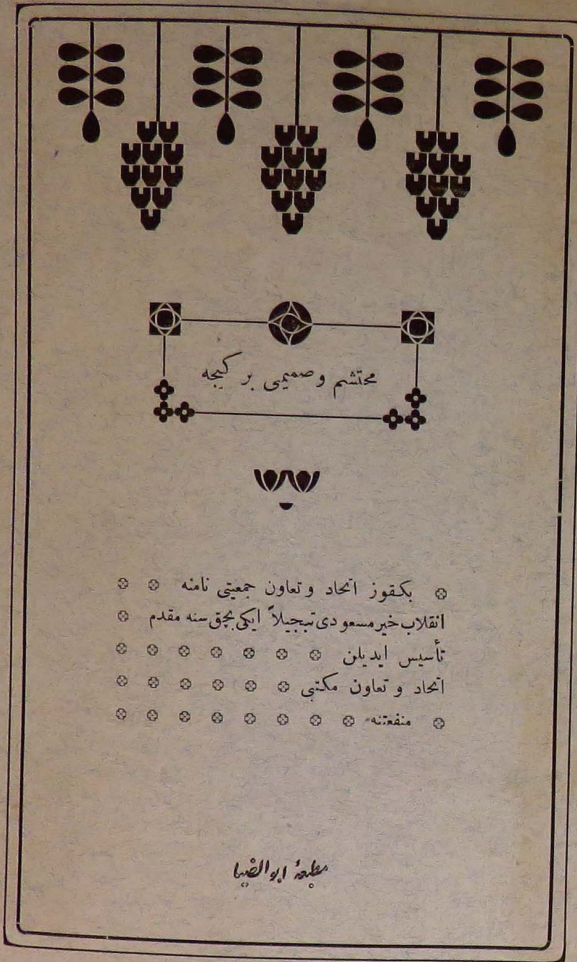 محتشم و صمیمی بر کیجه
بکقوز اتحاد و تعاون جمعیتی نامنه
انقلاب خیر مسعودی تبجیلاً ایکی بچق سنه مقدم
تأسیس ایدیلن
اتحاد و تعاون مکتبی
منفعتنه
مطبعۀ ابوالضیا